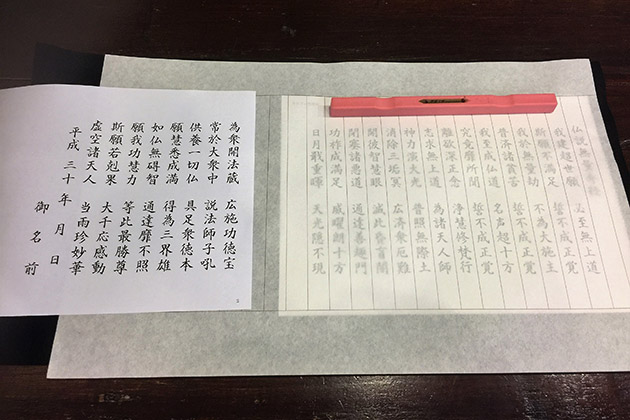 我建超世願 必至無上道
斯願不満足 誓不成正覚
我於無量劫 不為大施主
普済諸貧苦 誓不成正覚
我至成仏道 名声超十方
究竟靡所聞 誓不成正覚
離欲深正念 浄慧修梵行
志求無上道 為諸天人師
神力演大光 普照無際土
消除三垢冥 広済衆厄難
開彼智慧眼 滅此昏盲闇
閉塞諸悪道 通達善趣門
功祚成満足 威曜朗十方
日月戢重暉 天光隠不現
為衆開法蔵 広施功徳宝
常於大衆中 説法師子吼
供養一切仏 具足衆徳本
願慧悉成満 得為三界雄
如仏無碍智 通達靡不照
願我功慧力 等此最勝尊
斯願若剋果 大千応感動
虚空諸天人 当雨珍妙華
平成 三十 年 月 日
御 名 前